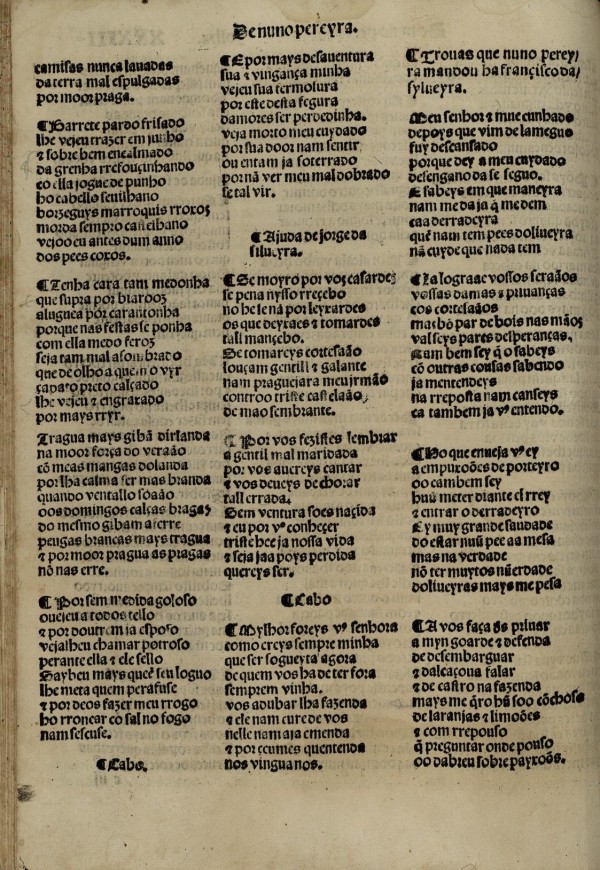 De nuno pereyra.
camisas nunca lauadas
da terra mal espulgadas
por moor praga.
¶ Barrete pardo frisado
lhe vejeu trazer em junho
⁊ sobre bem encalmado
da grenha rrefouçinhando
co ella jogue de punho
ho cabello seuilhano
borzeguys marroquis rroxoz
morda sempro castelhano
vejoo eu antes dum anno
dos pees coxos.
¶ Tenha cara tam medonha
que supra por biarooz
aluguea por carantonha
porque nas festas se ponha
com ella medo feroz
seja tam mal asombrado
que de olho a quem o vyr
çapato preto calçado
lhe vejeu ⁊ engraxado
por mays rryr.
Tragua mays gibã dirlanda
na moor força do veraão
cõ meas mangas dolanda
por lha calma ser mas branda
quando ventallo soaão
oos domingos calças bragaz
do mesmo gibam aferre
peugas brancas mays tragua
⁊ por moor pragua as pragas
nõ nas erre.
¶ Por sem medida goloso
ouejeu a todos tello
⁊ por doutrem ja esposo
vejalheu chamar potroso
perante ella ⁊ ele sello
Saybeu mays que seu loguo
lhe meta quem perafuse
⁊ por deos fazer meu rrogo
ho rroncar co sal no fogo
nam sescuse.
¶ Cabo.
¶ E por mays desauentura
sua ⁊ vingança minha
vejeu sua fermosura
por este desta fegura
damores ser perdedinha.
veja morto meu cuydado
por sua door nam sentir
ou entam ja soterrado
por nã ver meu mal dobrado
se tal vir.
¶ Ajuda de jorge da
silueyra.
¶ Se moyro por voz casardez
se pena nysso rreçebo
no he le na por leyxardes
os que deyxaes ⁊ tomardes
tall mançebo.
De tomareys cortesaão
louçam gentill ⁊ galante
nam praguejara meu jrmão
controo triste castelaão
de mao sembrante.
¶ Por vos fezistes lembrar
a gentil mal maridada
por vos auereys cantar
⁊ vos deueys de chorar
tall errada.
Sem ventura soes naçida
⁊ eu por vᵒ conheçer
triste hee ja nossa vida
⁊ seja jaa poys perdida
quereys ser.
¶ Cabo
¶ Mylhor foreys vᵒ senhora
como creys sempre minha
que ser sogueyta agora
de quem vos ha de ter fora
semprem vinha.
vos adubar lha fazenda
⁊ ele nam cure de vos
nelle nam aja emenda
⁊ por çeumes quentenda
nos vingua nos.
¶ Trouas que nuno perey/
ra mandou ha françisco da/
sylueyra.
Meu senhor ⁊ mue cunhado
depoys que vim de lameguo
fuy descansado
porque dey a meu cuydado
desengano da se seguo.
E sabeys em que maneyra
nam me da ja q̃ me dem
caa derradeyra
quẽ nam tem pees doliueyra
nã cuyde que nada tem
¶ Ja lograae vossos seraãos
vossas damas ⁊ priuanças
cos cortesaãos
mas hõ par de bois nas mãoz
val seys pares desperanças,
Nam bem sey q̃ o sabeys
cõ outras cousas sabendo
ja mentendeys
na rreposta nam canseys
ca tambem ja vᵒ entendo.
¶ Ho que enueja vᵒ ey
a empuxoões de porteyro
oo cambem sey
huũ meter diante el rrey
⁊ entrar o derradeyro
Ey muy grande saudade
do estar nuũ pee aa mesa
mas na verdade
nõ ter muytos nũerdade
doliueyras mays me pesa
¶ A vos faça ds priuar
a myn goarde ⁊ defenda
de desembarguar
⁊ dalcaçoua falar
⁊ de castro na fazenda
mays me q̃ro hũ soo cõchoso
de laranjas ⁊ limoões
⁊ com rrepouso
q̃ preguntar onde pouso
oo dabreu sobre payxoões.